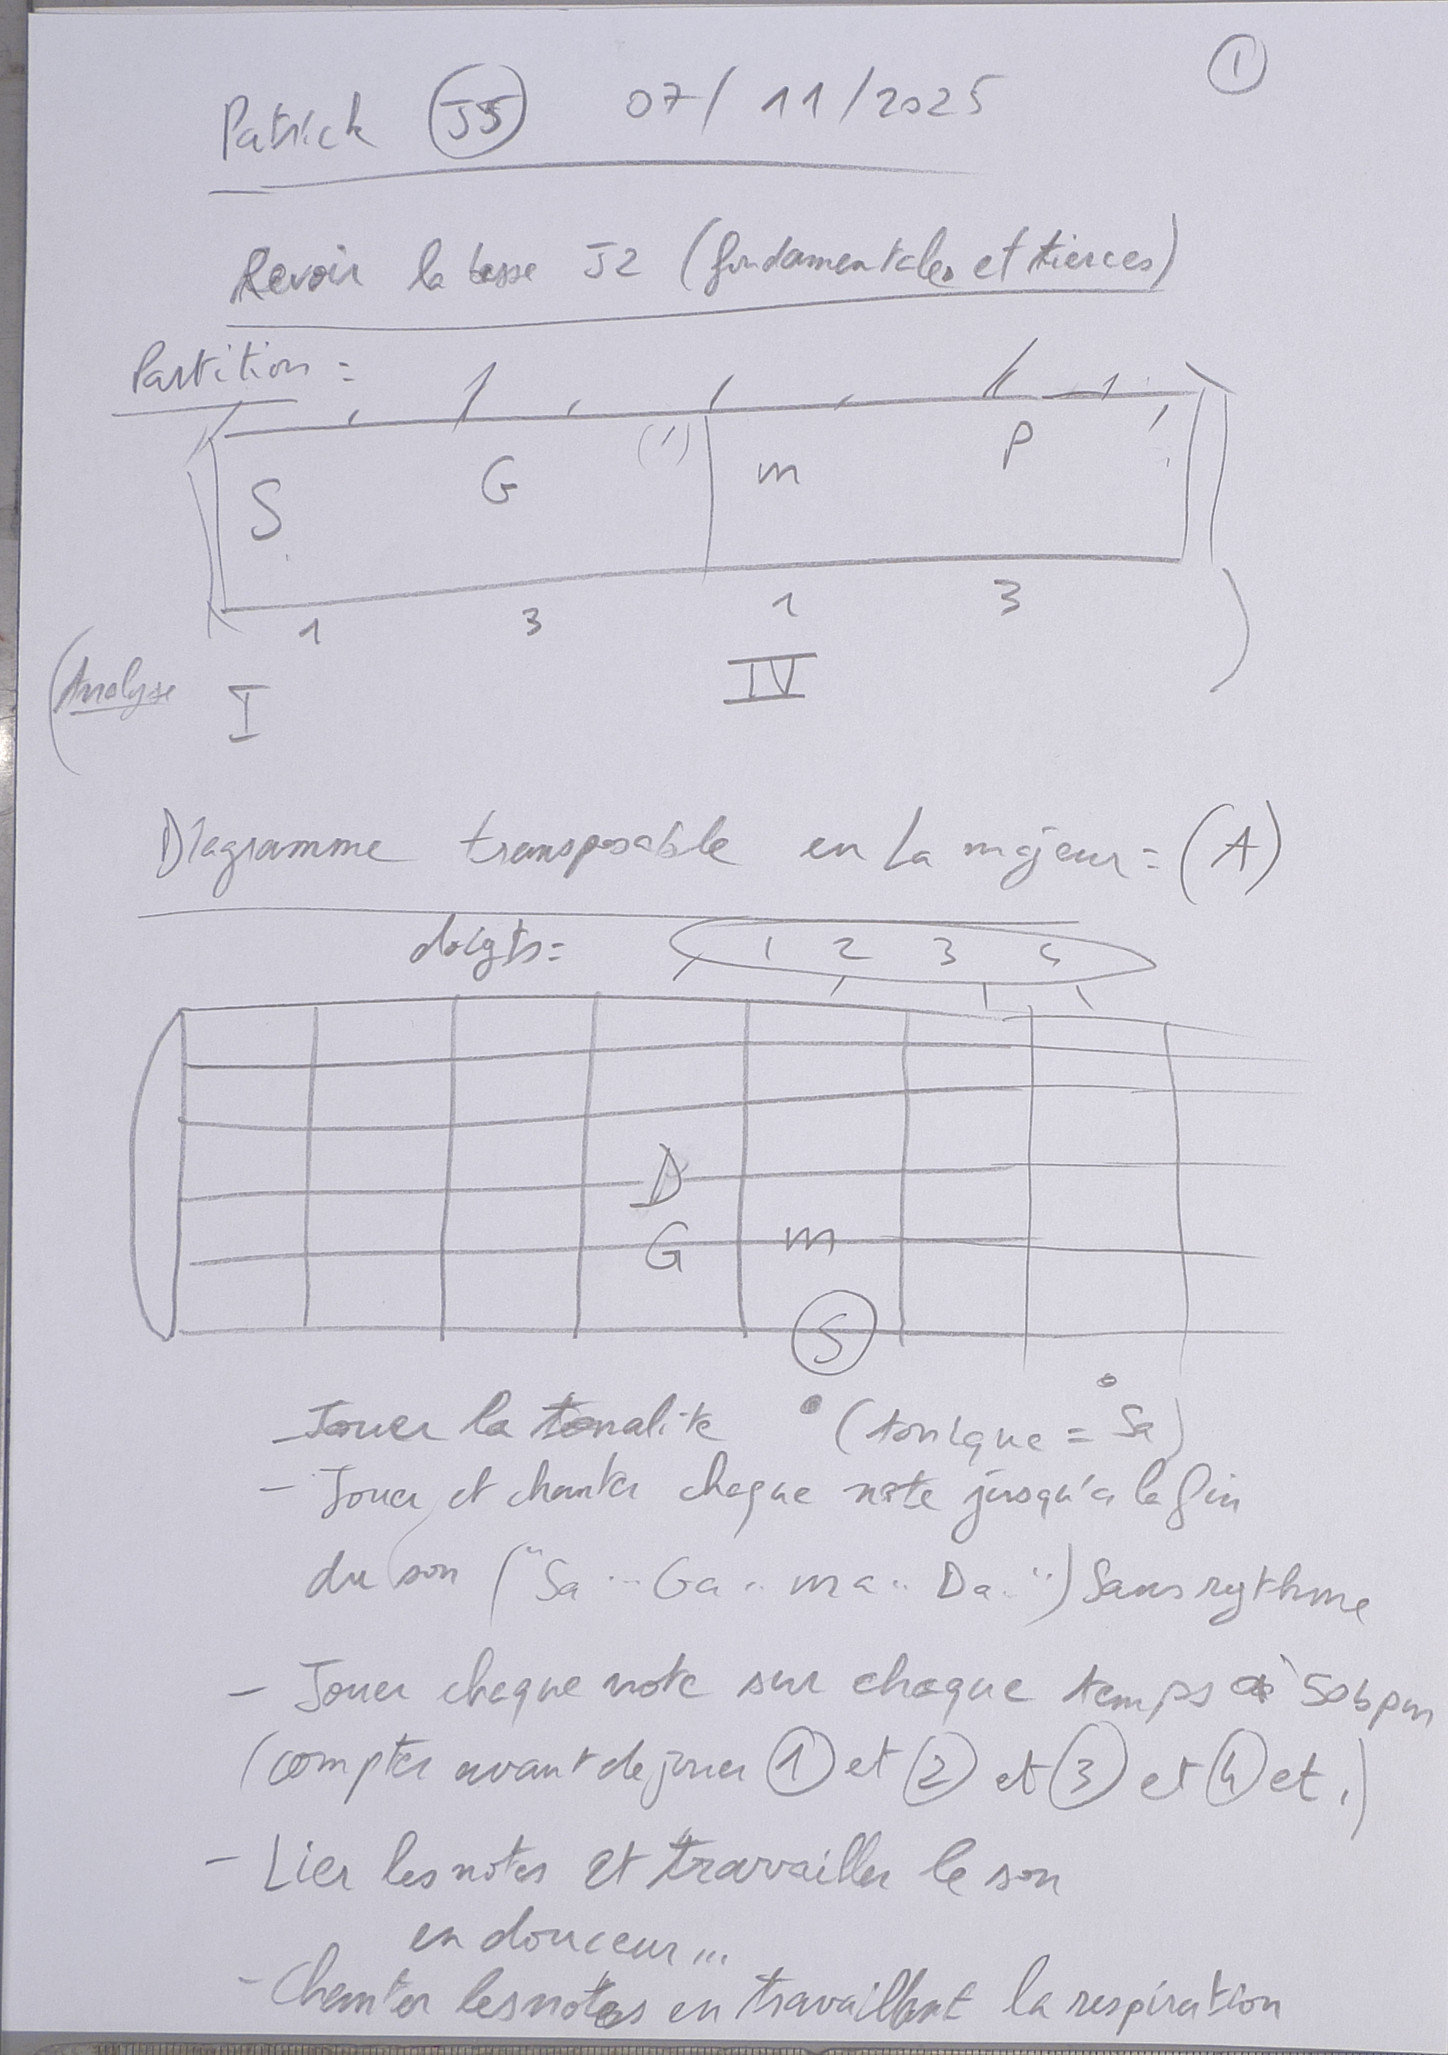 ①
Patrick J5 07/11/2025
Revoir la basse J2 (fondamentales et tierces)
Partition :
S G (') m P
1 3 1 3
(Analyse I IV )
Diagramme transposable en La majeur = (A)
doigts = 1 2 3 4
D
G m
S
- Jouer la tonalité (tonique = Sa)
- Jouer et chanter chaque note jusqu'à la fin
du son ("Sa .. Ga .. ma .. Da ..") Sans rythme
- Jouer chaque note sur chaque temps à 50bpm
(compter avant de jouer ① et ② et ③ et ④ et.)
- Lier les notes et travailler le son
en douceur...
- Chanter les notes en travaillant la respiration